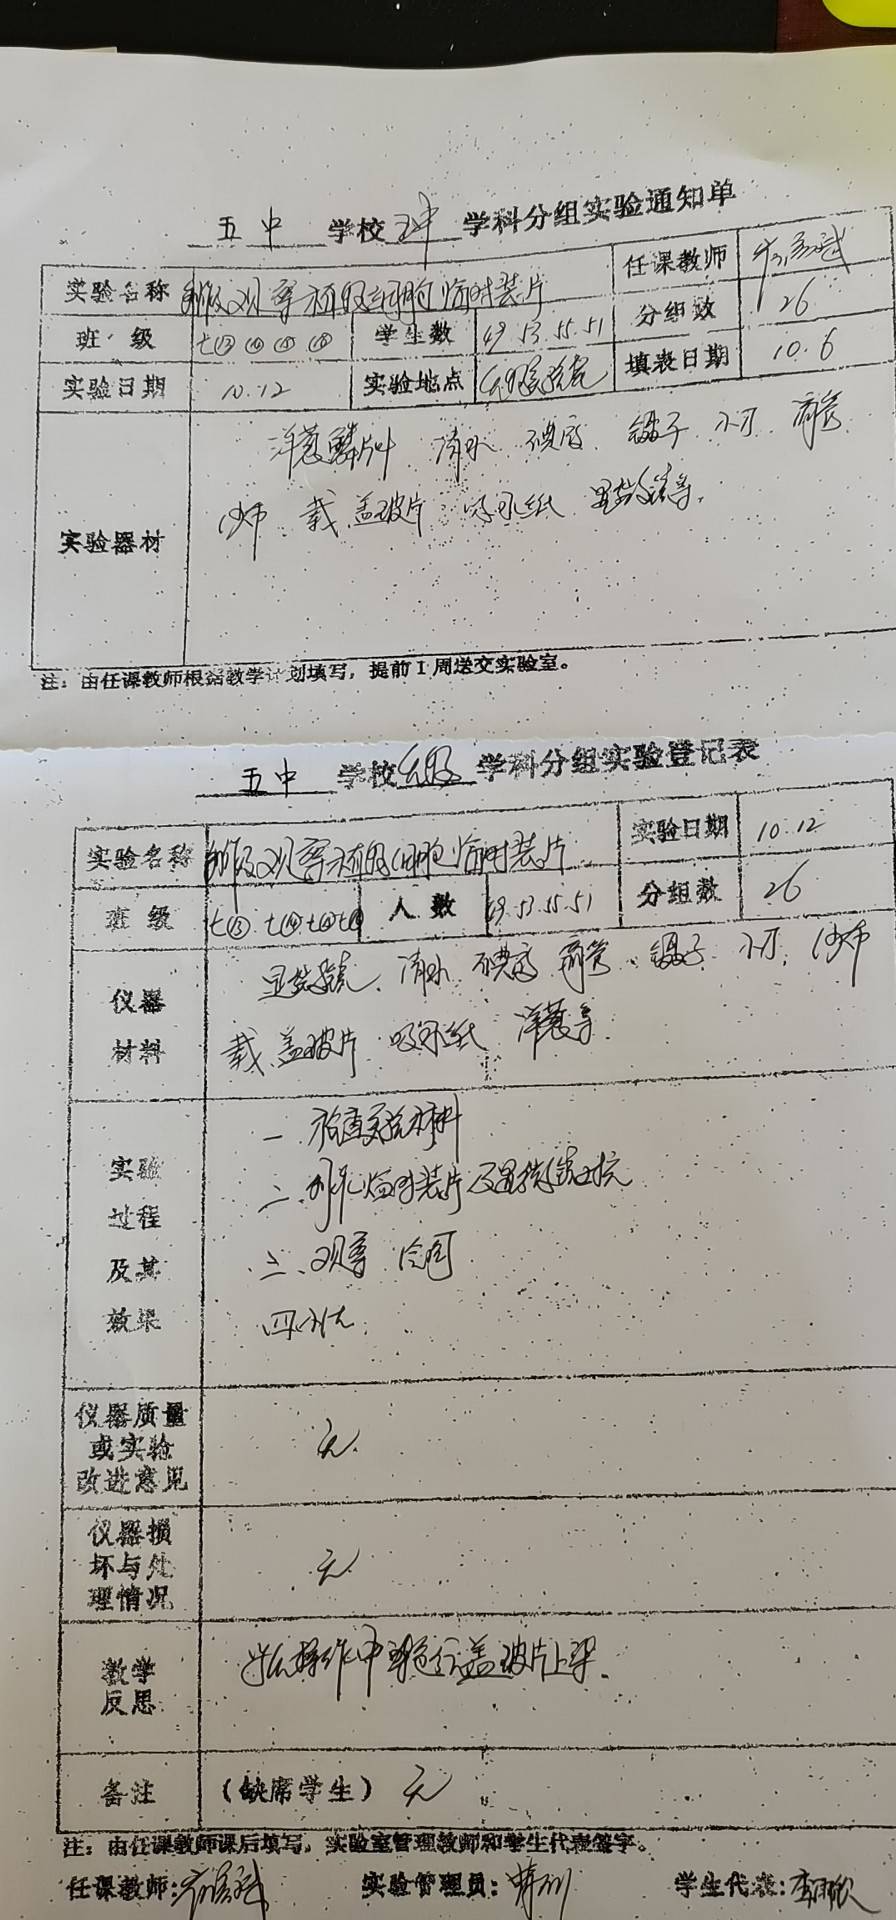 五中 学校 学科分组实验通知单
实验名称 制作及观察植物细胞临时装片 任课教师
班级 七⑬ ⑭ ⑮ ⑯ 学生数 49 53 55 51 分组数 26
实验日期 10.12 实验地点 填表日期 10.6
实验器材
洋葱鳞片叶 清水 碘液 镊子 小刀 滴管
纱布 载 盖玻片 吸水纸 显微镜等.
注：由任课教师根据教学计划填写，提前1周送交实验室。
五中 学校 学科分组实验登记表
实验名称 制作及观察植物细胞临时装片 实验日期 10.12
班级 人数 49.53.55.51 分组数 26
仪器材料
显微镜. 清水 碘液 滴管. 镊子. 小刀. 纱布
载、盖玻片 吸水纸 洋葱等.
实验过程及其效果
一. 检查实验材料
二. 制作临时装片及显微镜对光
三. 观察 绘图
四.小结.
仪器质量或实验改进意见 无.
仪器损坏与处理情况 无.
教学反思 盖玻片上
备注 (缺席学生) 无
注：由任课教师课后填写，实验室管理教师和学生代表签字。
任课教师: 实验管理员: 学生代表: